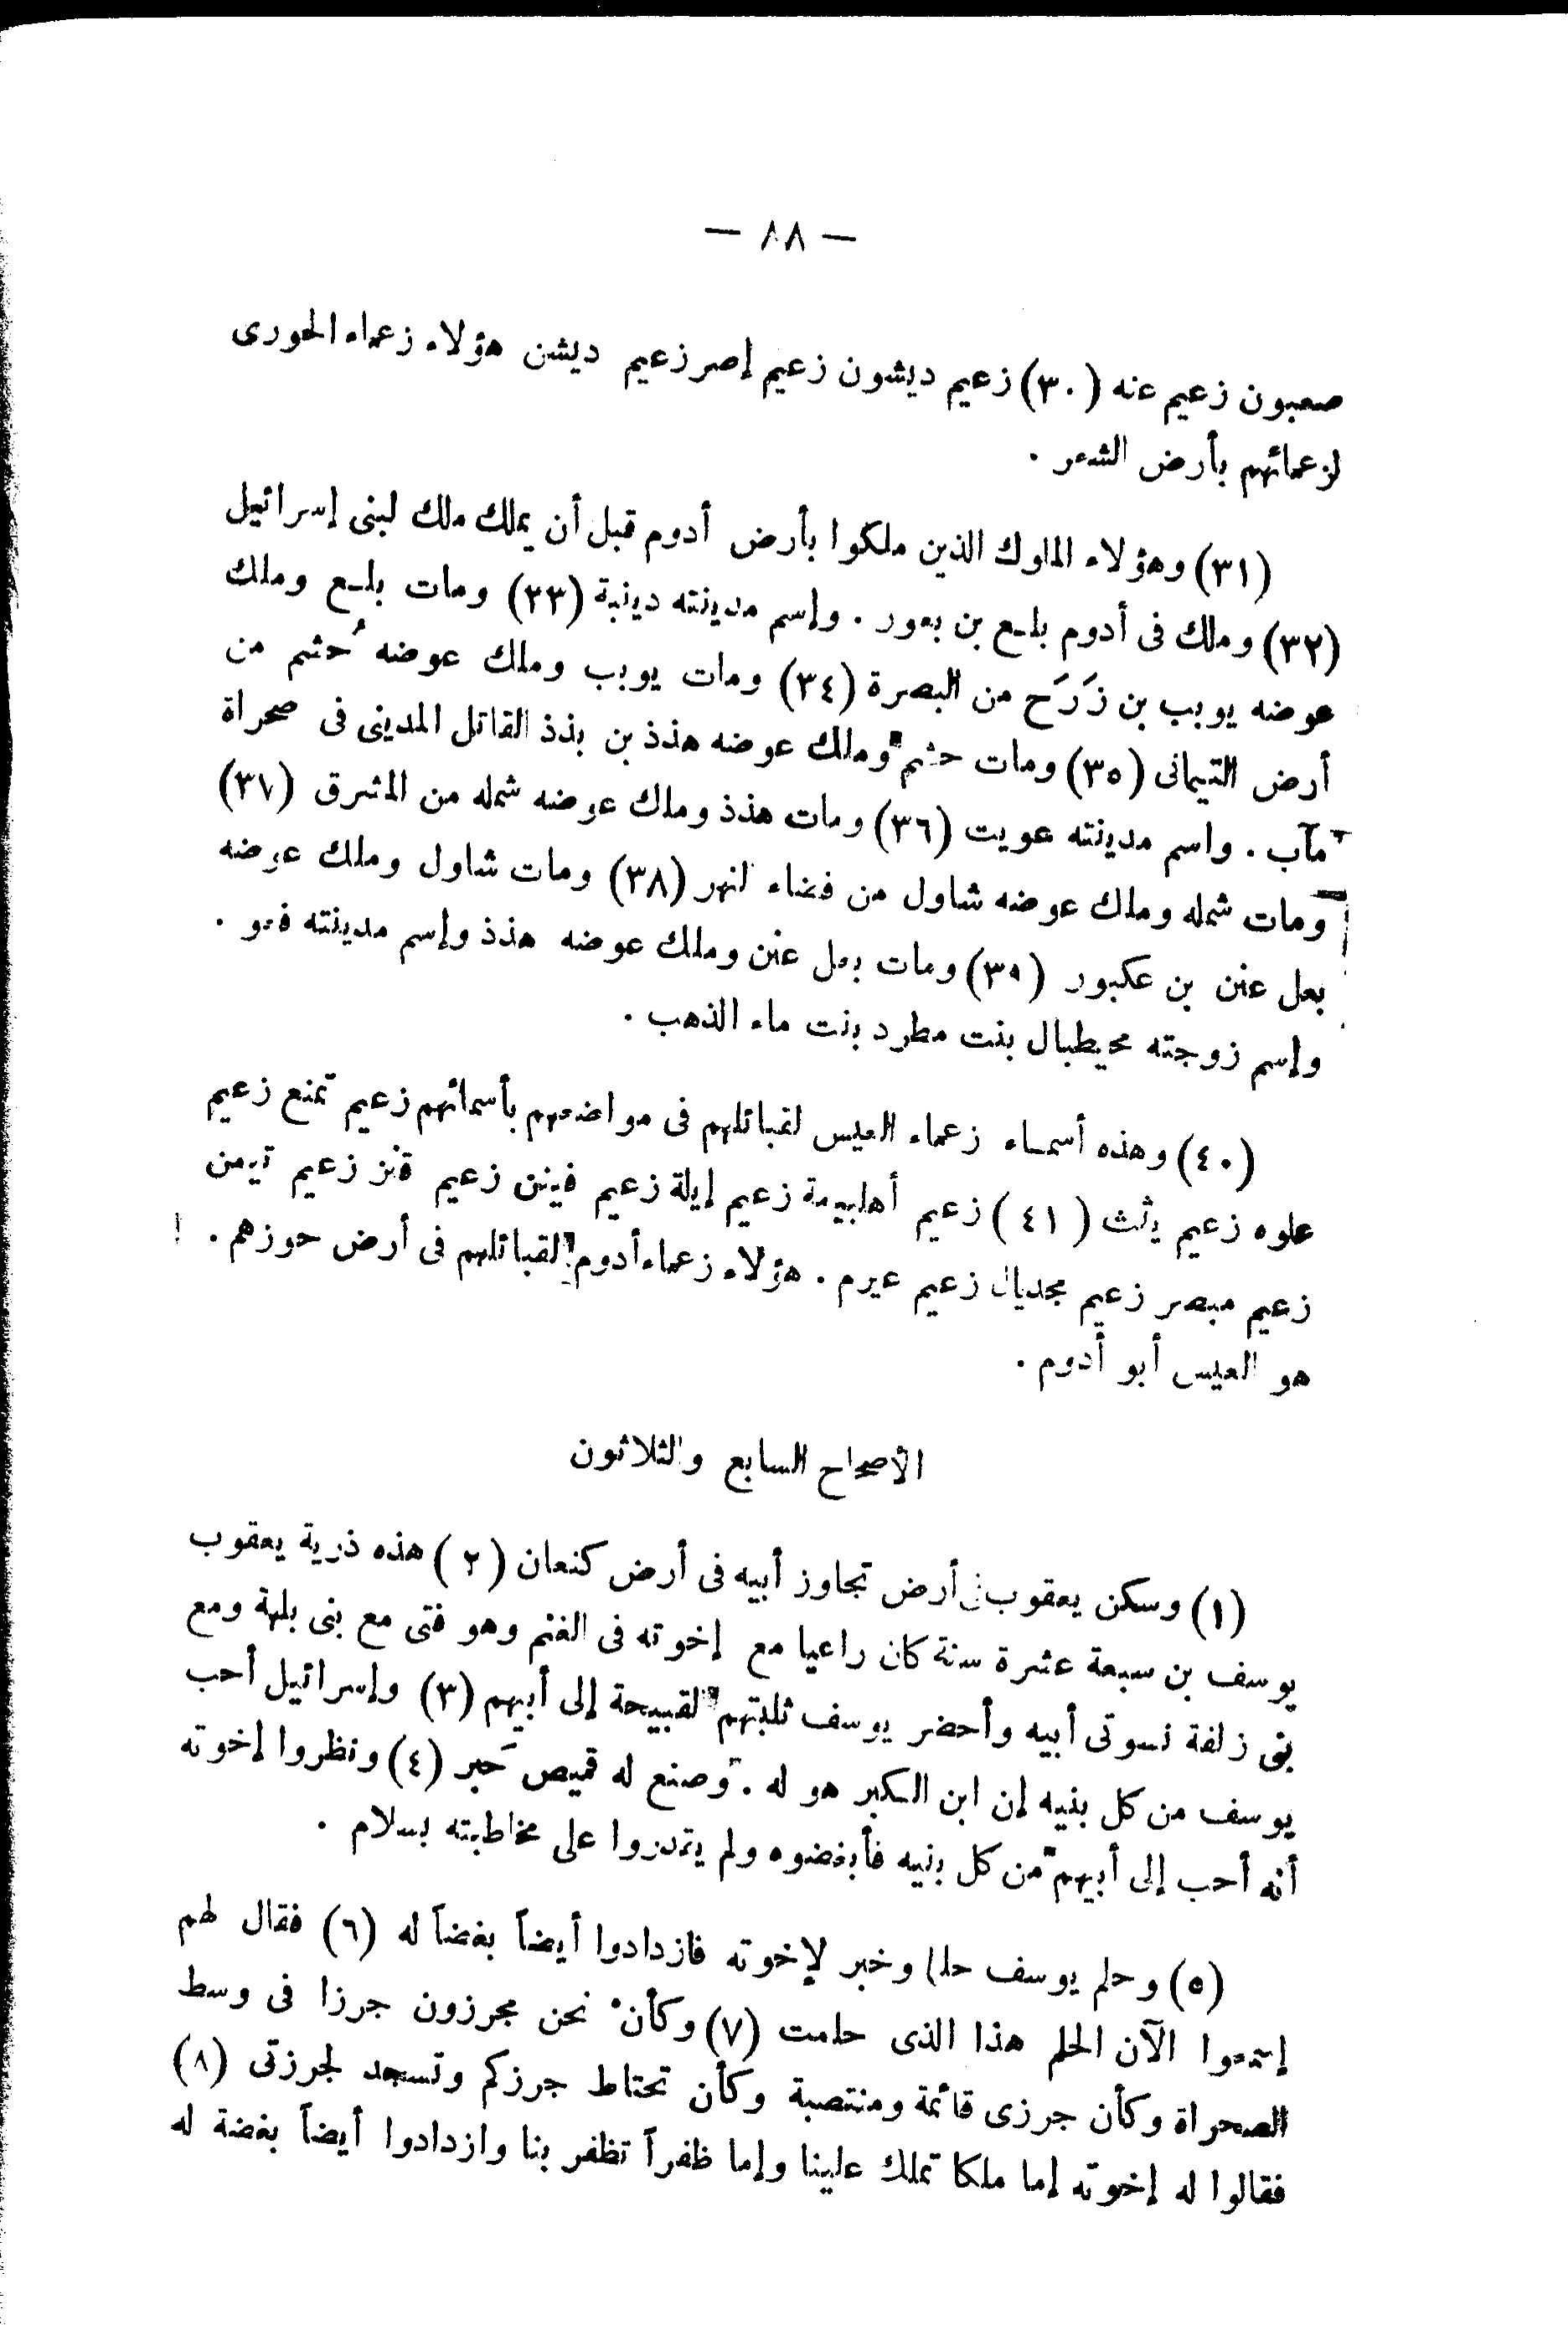 — ٨٨ —
صعبون زعيم عنه (٣٠) زعيم ديشون زعيم إصر زعيم ديشن هؤلاء زعماء الحورى
لزعمائهم بأرض الشعر .
(٣١) وهؤلاء الملوك الذين ملكوا بأرض أدوم قبل أن يملك ملك لبنى إسرائيل
(٣٢) وملك فى أدوم بلع بن بعور . وإسم مدينته دينبة (٣٣) ومات بلع وملك
عوضه يوبب بن زَرَح من البصرة (٣٤) ومات يوبب وملك عوضه حُشم من
أرض التيمانى (٣٥) ومات حشم وملك عوضه هذذ بن بذذ القاتل المدينى فى صحراة
مآب . واسم مدينته عويت (٣٦) ومات هذذ وملك عوضه شمله من المشرق (٣٧)
ومات شمله وملك عوضه شاول من فضاء النهر (٣٨) ومات شاول وملك عوضه
بعل عنن بن عكبور (٣٩) ومات بعل عنن وملك عوضه هذذ وإسم مدينته فعو .
وإسم زوجته محيطبال بنت مطرد بنت ماء الذهب .
(٤٠) وهذه أسماء زعماء العيس لقبائلهم فى مواضعهم بأسمائهم زعيم تمنع زعيم
علوه زعيم يثث (٤١) زعيم أهليبمة زعيم إيلة زعيم فينن زعيم قنز زعيم تيمن
زعيم مبصر زعيم مجديال زعيم عيرم . هؤلاء زعماء أدوم لقبائلهم فى أرض حوزهم .
هو العيس أبو أدوم .
الأصحاح السابع والثلاثون
(١) وسكن يعقوب فى أرض تجاوز أبيه فى أرض كنعان (٢) هذه ذرية يعقوب
يوسف بن سبعة عشرة سنة كان راعيا مع إخوته فى الغنم وهو فتى مع بنى بلهة ومع
بنى زلفة نسوتى أبيه وأحضر يوسف ثلبتهم القبيحة إلى أبيهم (٣) وإسرائيل أحب
يوسف من كل بنيه إن ابن الكبر هو له . وصنع له قميص حَبر (٤) ونظروا إخوته
أنه أحب إلى أبيهم من كل بنيه فأبغضوه ولم يقدروا على مخاطبته بسلام .
(٥) وحلم يوسف حلما وخبر لإخوته فازدادوا أيضاً بغضاً له (٦) فقال لهم
إستمعوا الآن الحلم هذا الذى حلمت (٧) وكأن نحن مجرزون جرزا فى وسط
الصحراة وكأن جرزى قائمة ومنتصبة وكأن تحتاط جرزكم وتسجد لجرزتى (٨)
فقالوا له إخوته إما ملكا تملك علينا وإما ظفراً تظفر بنا وازدادوا أيضاً بغضة له